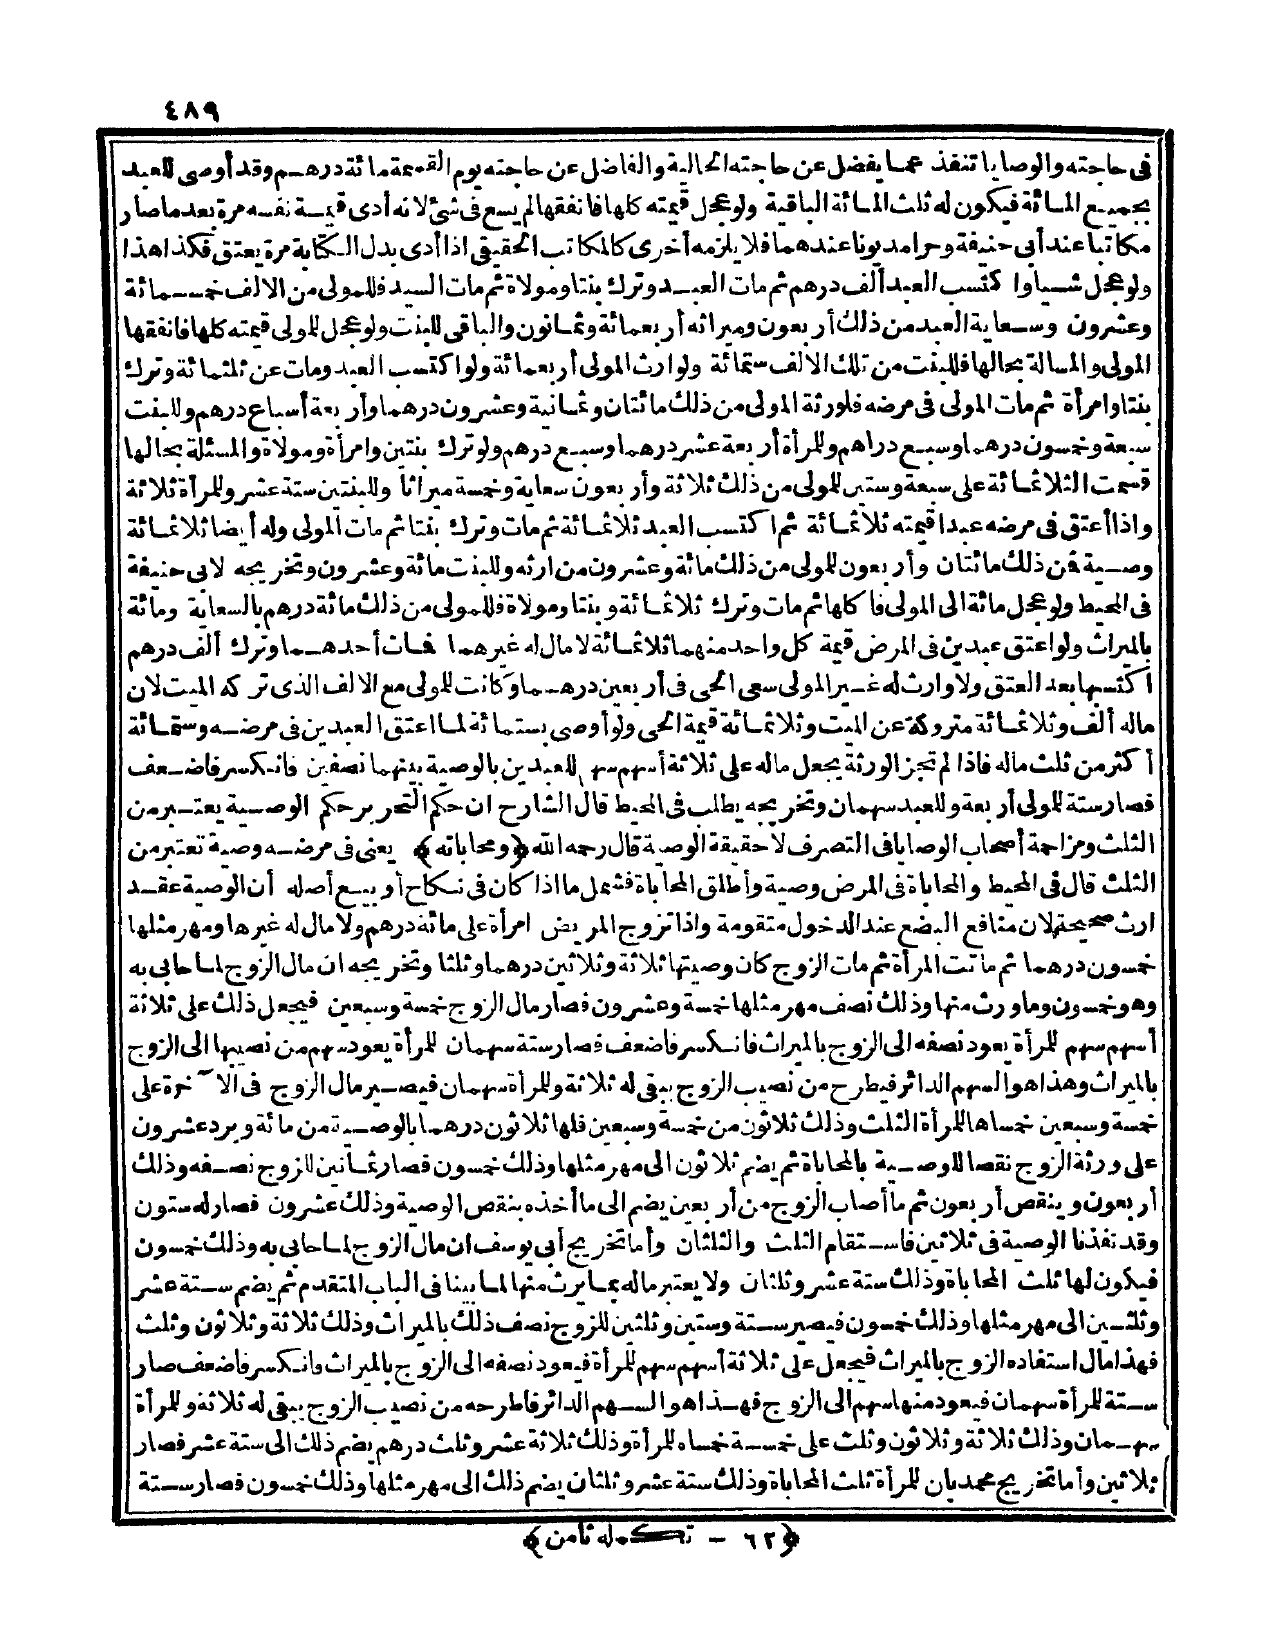 ٤٨٩
فى حاجته والوصايا تنفذ عما يفضل عن حاجته الحالية والفاضل عن حاجته يوم القسمة مائة درهم وقد أوصى للعبد
بجميع المائة فيكون له ثلث المائة الباقية ولو عجل قيمته كلها فانفقها لم يسع فى شئ لانه أدى قيمة نفسه مرة بعد ما صار
مكاتبا عند أبى حنيفة وحرا مديونا عندهما فلا يلزمه أخرى كالمكاتب الحقيقى اذا أدى بدل الكتابة مرة يعتق فكذا هذا
ولو عجل شيأ وا كتسب العبد ألف درهم ثم مات العبد وترك بنتا ومولاة ثم مات السيد فللمولى من الالف خمسمائة
وعشرون وسعاية العبد من ذلك أربعون وميراثه أربعمائة وثمانون والباقى للبنت ولو عجل للمولى قيمته كلها فانفقها
المولى والمسالة بحالها فللبنت من تلك الالف ستمائة ولوارث المولى أربعمائة ولو اكتسب العبد ومات عن ثلثمائة وترك
بنتا وامرأة ثم مات المولى فى مرضه فلورثة المولى من ذلك مائتان وثمانية وعشرون درهما وأربعة أسباع درهم وللبنت
سبعة وخمسون درهما وسبع دراهم وللمرأة أربعة عشر درهما وسبع درهم ولو ترك بنتين وامرأة ومولاة والمسئلة بحالها
قسمت الثلاثمائة على سبعة وستين للمولى من ذلك ثلاثة وأربعون سعاية وخمسة ميراثا وللبنتين ستة عشر وللمرأة ثلاثة
واذا أعتق فى مرضه عبدا قيمته ثلاثمائة ثم اكتسب العبد ثلاثمائة ثم مات وترك بنتا ثم مات المولى وله أيضا ثلاثمائة
وصية فمن ذلك مائتان وأربعون للمولى من ذلك مائة وعشرون من ارثه وللبنت مائة وعشرون وتخريجه لابى حنيفة
فى المحيط ولو عجل مائة الى المولى فاكلها ثم مات وترك ثلاثمائة وبنتا ومولاة فللمولى من ذلك مائة درهم بالسعاية ومائة
بالميراث ولو اعتق عبدين فى المرض قيمة كل واحد منهما ثلاثمائة لا مال له غيرهما فمات أحدهما وترك ألف درهم
اكتسبها بعد العتق ولا وارث له غير المولى سعى الحى فى أربعين درهما وكانت للمولى مع الالف الذى تركه الميت لان
ماله ألف وثلاثمائة متروكة عن الميت وثلاثمائة قيمة الحى ولو أوصى بستمائة لما اعتق العبدين فى مرضه وستمائة
أكثر من ثلث ماله فاذا لم تجز الورثة يجعل ماله على ثلاثة أسهم سهم للعبدين بالوصية بينهما نصفين فانكسر فاضعف
فصار ستة للمولى أربعة وللعبد سهمان وتخريجه يطلب فى المحيط قال الشارح ان حكم التحرير حكم الوصية يعتبر من
الثلث ومزاحمة أصحاب الوصايا فى التصرف لا حقيقة الوصية قال رحمه الله ﴿ومحاباته﴾ يعنى فى مرضه وصية تعتبر من
الثلث قال فى المحيط والمحاباة فى المرض وصية وأطلق المحاباة فشمل ما اذا كان فى نكاح أو بيع أصله أن الوصية عقد
ارث صحيحة لان منافع البضع عند الدخول متقومة واذا تزوج المريض امرأة على مائة درهم ولا مال له غيرها ومهر مثلها
خمسون درهما ثم ماتت المرأة ثم مات الزوج كان وصيتها ثلاثة وثلاثين درهما وثلثا وتخريجه ان مال الزوج لما حابى به
وهو خمسون وما ورث منها وذلك نصف مهر مثلها خمسة وعشرون فصار مال الزوج خمسة وسبعين فيجعل ذلك على ثلاثة
أسهم سهم للمرأة يعود نصفه الى الزوج بالميراث فانكسر فاضعف فصار ستة سهمان للمرأة يعود سهم من نصيبها الى الزوج
بالميراث وهذا هو السهم الدائر فيطرح من نصيب الزوج يبقى له ثلاثة وللمرأة سهمان فيصير مال الزوج فى الآخرة على
خمسة وسبعين خمساها للمرأة الثلث وذلك ثلاثون من خمسة وسبعين فلها ثلاثون درهما بالوصية من مائة ويرد عشرون
على ورثة الزوج نقصا للوصية بالمحاباة ثم يضم ثلاثون الى مهر مثلها وذلك خمسون فصار ثمانين للزوج نصفه وذلك
أربعون وينقص أربعون ثم ما أصاب الزوج من أربعين يضم الى ما أخذه بنقص الوصية وذلك عشرون فصار له ستون
وقد نفذنا الوصية فى ثلاثين فاستقام الثلث والثلثان وأما تخريج أبى يوسف ان مال الزوج لما حابى به وذلك خمسون
فيكون لها ثلث المحاباة وذلك ستة عشر وثلثان ولا يعتبر ماله بما يرث منها لما بينا فى الباب المتقدم ثم يضم ستة عشر
وثلثين الى مهر مثلها وذلك خمسون فيصير ستة وستين وثلثين للزوج نصف ذلك بالميراث وذلك ثلاثة وثلاثون وثلث
فهذا مال استفاده الزوج بالميراث فيجعل على ثلاثة أسهم سهم للمرأة فيعود نصفه الى الزوج بالميراث وانكسر فاضعف صار
ستة للمرأة سهمان فيعود منها سهم الى الزوج فهذا هو السهم الدائر فاطرحه من نصيب الزوج يبقى له ثلاثة وللمرأة
سهمان وذلك ثلاثة وثلاثون وثلث على خمسة خمساه للمرأة وذلك ثلاثة عشر وثلث درهم يضم ذلك الى ستة عشر فصار
ثلاثين وأما تخريج محمد بان للمرأة ثلث المحاباة وذلك ستة عشر وثلثان يضم ذلك الى مهر مثلها وذلك خمسون فصار ستة
﴿٦٢ - تكمله ثامن﴾